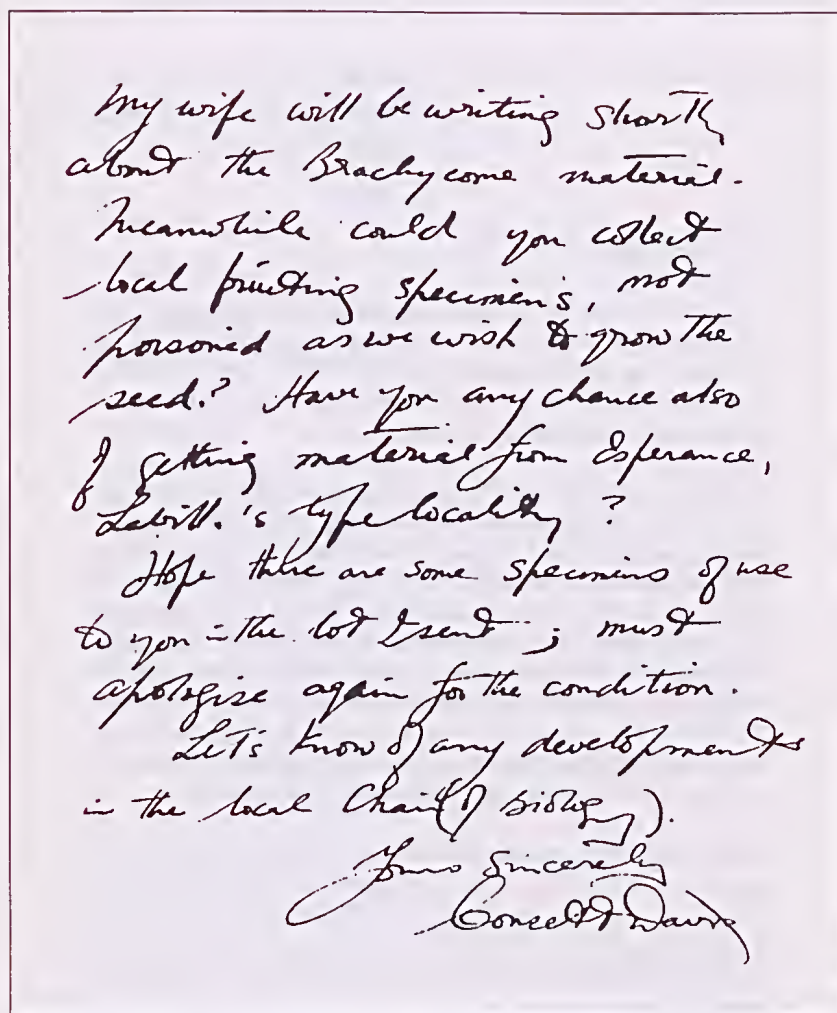 My wife will be writing shortly
about the Brachycome material.
Meanwhile could you collect
local fruiting specimens, not
poisoned as we wish to grow the
seed? Have you any chance also
of getting material from Esperance,
Labill.'s type locality?
Hope there are some specimens of use
to you in the lot I sent; must
apologise again for the condition.
Let's know of any developments
in the local Chair (of Biology).
Yours Sincerely
Consett Davis